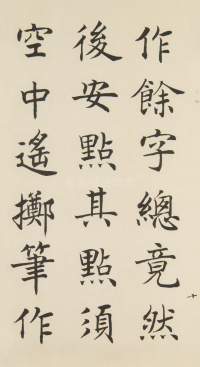 作餘字總竟然
後安點其點須
空中遙擲筆作